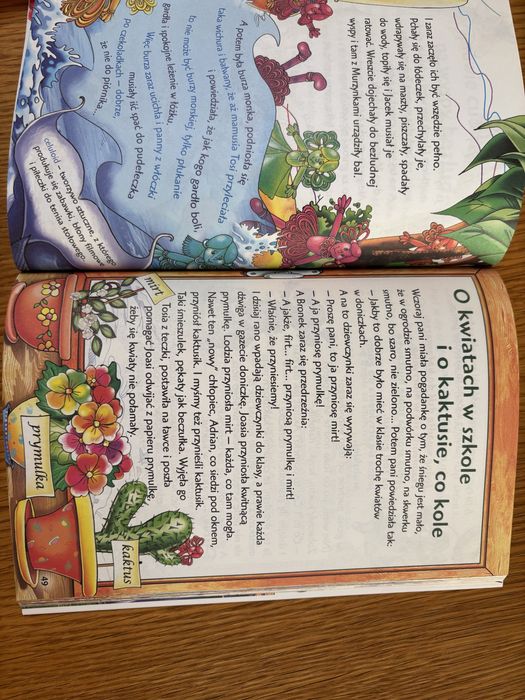 I zaraz zaczęło ich być wszędzie pełno.
Pchały się do łódeczek, przechylały je,
wdrapywały się na maszty, piszczały, spadały
do wody, topiły się i Jacek musiał je
ratować. Wreszcie dojechały do bezludnej
wyspy i tam z Murzynkami urządziły bal.
A potem była burza morska, podniosła się
taka wichura i bałwany, że aż mamusia Tosi przyleciała
i powiedziała, że jak kogo gardło boli,
to nie może być burzy morskiej, tylko płukanie
gardła i spokojne leżenie w łóżku.
Więc burza zaraz ucichła i panny z włóczki
musiały iść spać do pudełeczka
po czekoladkach – dobrze,
że nie do piórnika...
celuloid – tworzywo sztuczne, z którego
produkuje się zabawki, błony filmowe
i piłeczki do tenisa stołowego.
O kwiatach w szkole
i o kaktusie, co kole
Wczoraj pani miała pogadankę o tym, że śniegu jest mało,
że w ogrodzie smutno, na podwórku smutno, na skwerku
smutno, bo szaro, nie zielono... Potem pani powiedziała tak:
– Jakby to dobrze było mieć w klasie trochę kwiatów
w doniczkach.
A na to dziewczynki zaraz się wyrywają:
– Proszę pani, to ja przyniosę mirt!
– A ja przyniosę prymulkę!
A Bronek zaraz się przedrzeźnia:
– A jakże, firt... firt... przyniosą prymulkę i mirt!
– Właśnie, że przyniesiemy!
I dzisiaj rano wpadają dziewczynki do klasy, a prawie każda
dźwiga w gazecie doniczkę. Joasia przyniosła kwitnącą
prymulkę, Lodzia przyniosła mirt – każda, co tam mogła.
Nawet ten „nowy” chłopiec, Adrian, co siedzi pod oknem,
przyniósł kaktusik. I myśmy też przynieśli kaktusik.
Taki śmieszulek, pękaty jak beczułka. Wyjęła go
Tosia z teczki, postawiła na ławce i poszła
pomagać Joasi odwijać z papieru prymulkę,
żeby się kwiaty nie połamały.
mirt
prymulka
kaktus
49